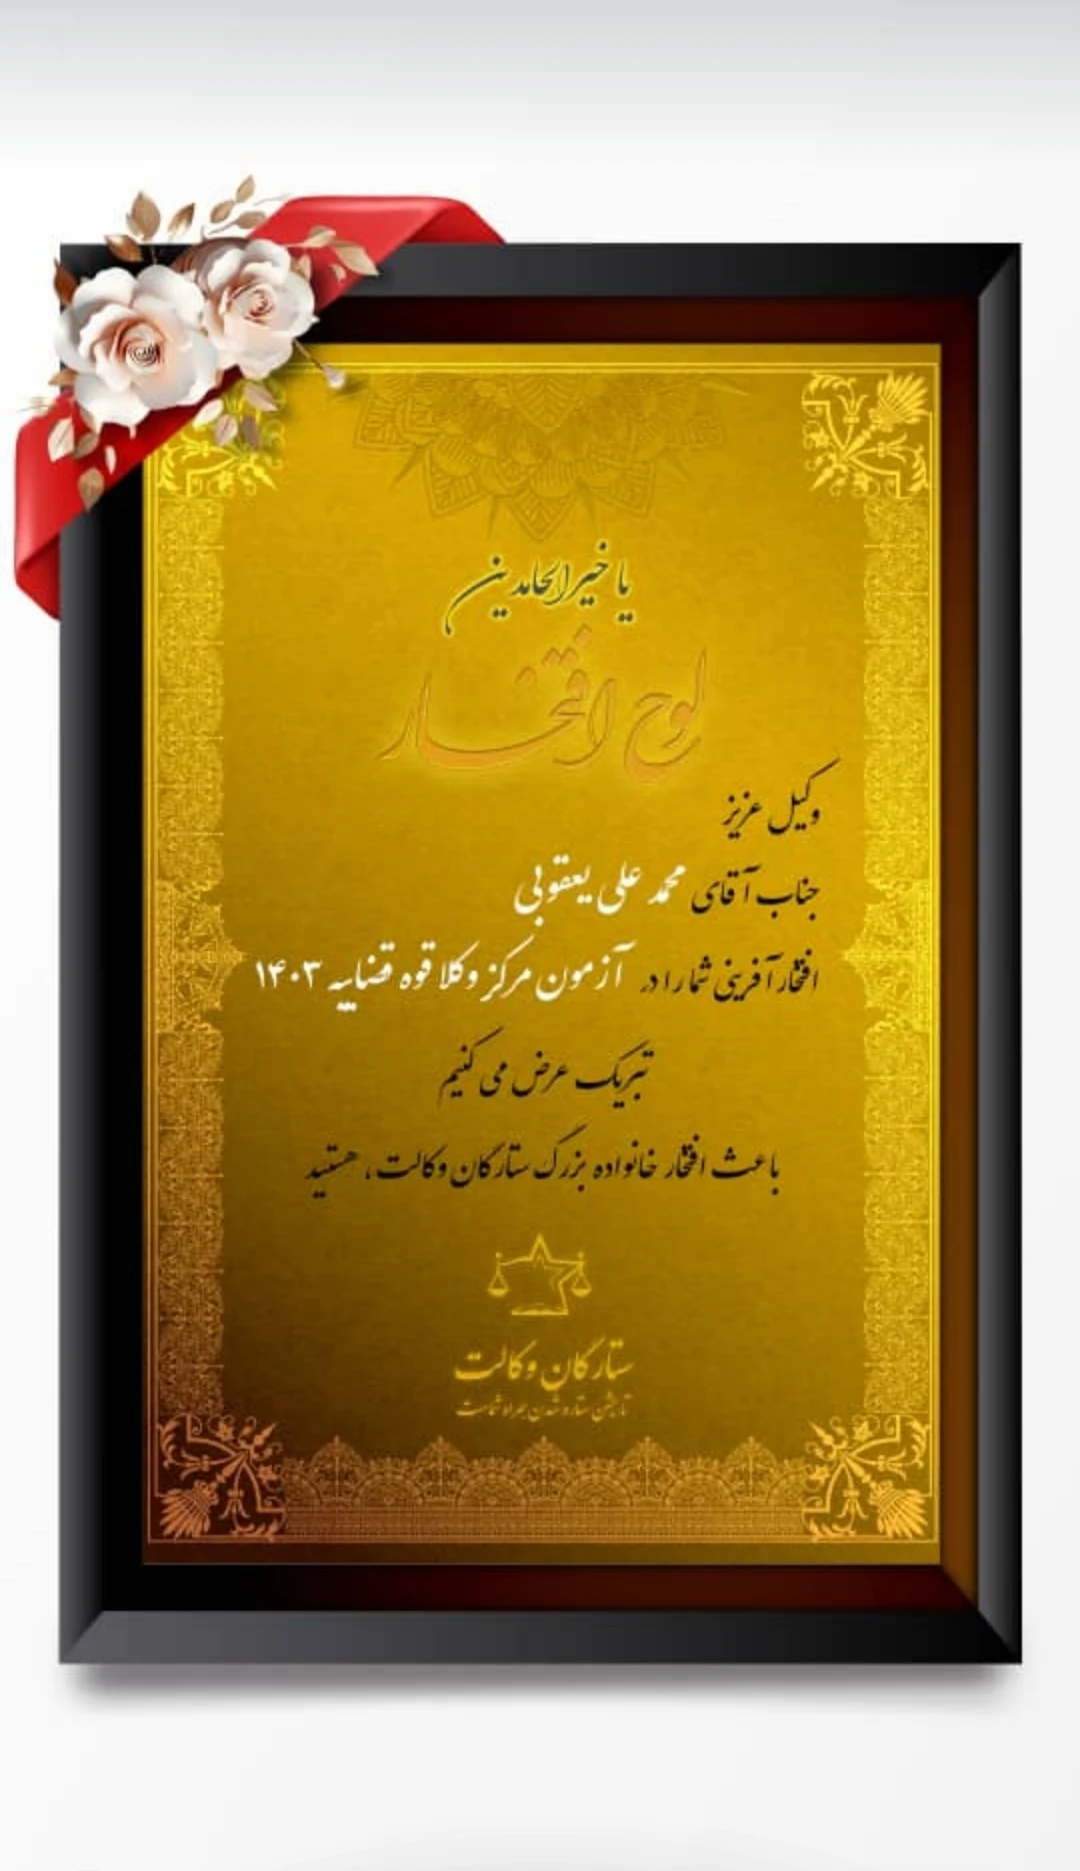 یا خیر الحامدین
لوح افتخار
وکیل عزیز
جناب آقای محمد علی یعقوبی
افتخار آفرینی شما را در آزمون مرکز وکلا قوه قضاییه ۱۴۰۳
تبریک عرض می کنیم
باعث افتخار خانواده بزرگ ستارگان وکالت، هستید
ستارگان وکالت
تا جشن ستاره شدن همراه شماست